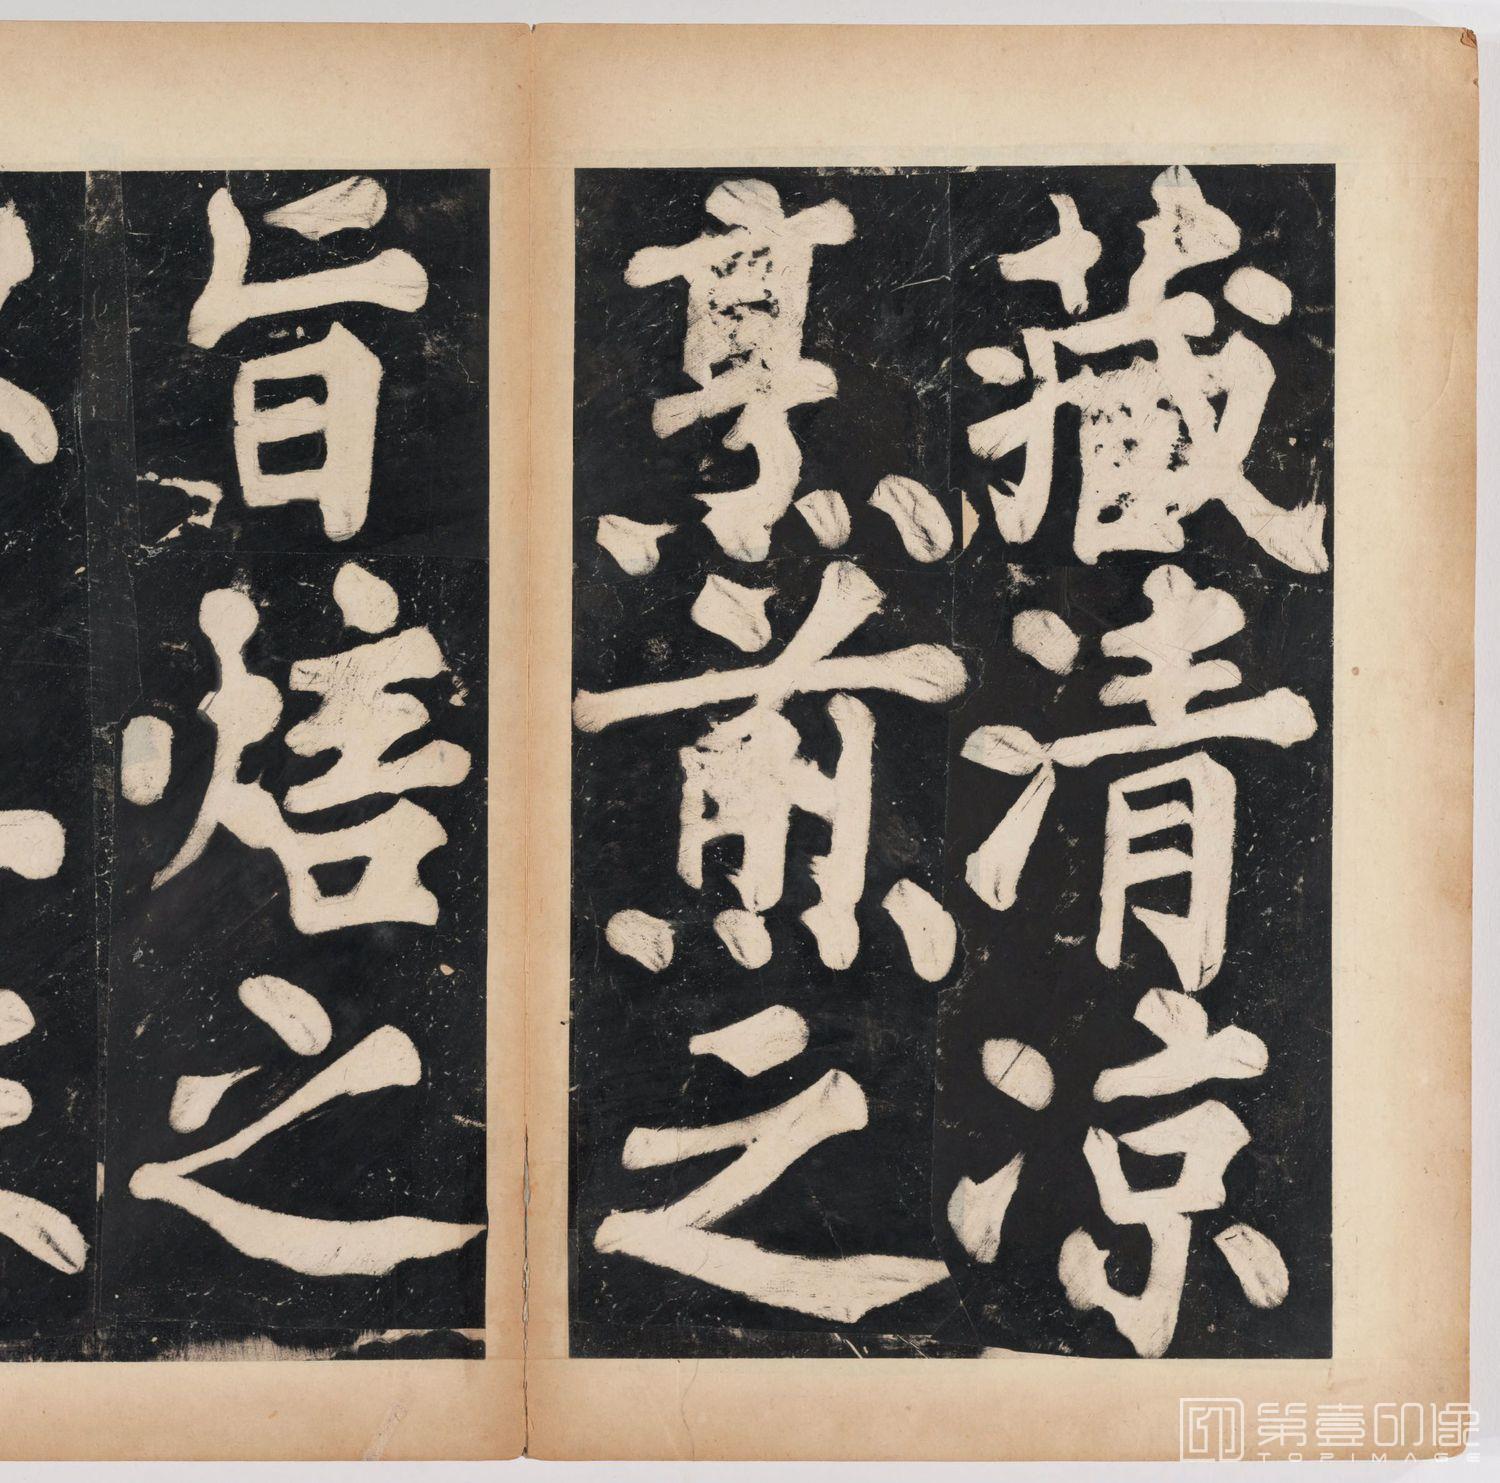 藏清凉
烹煎之
旨焙之
第壹印像
TOPIMAGE